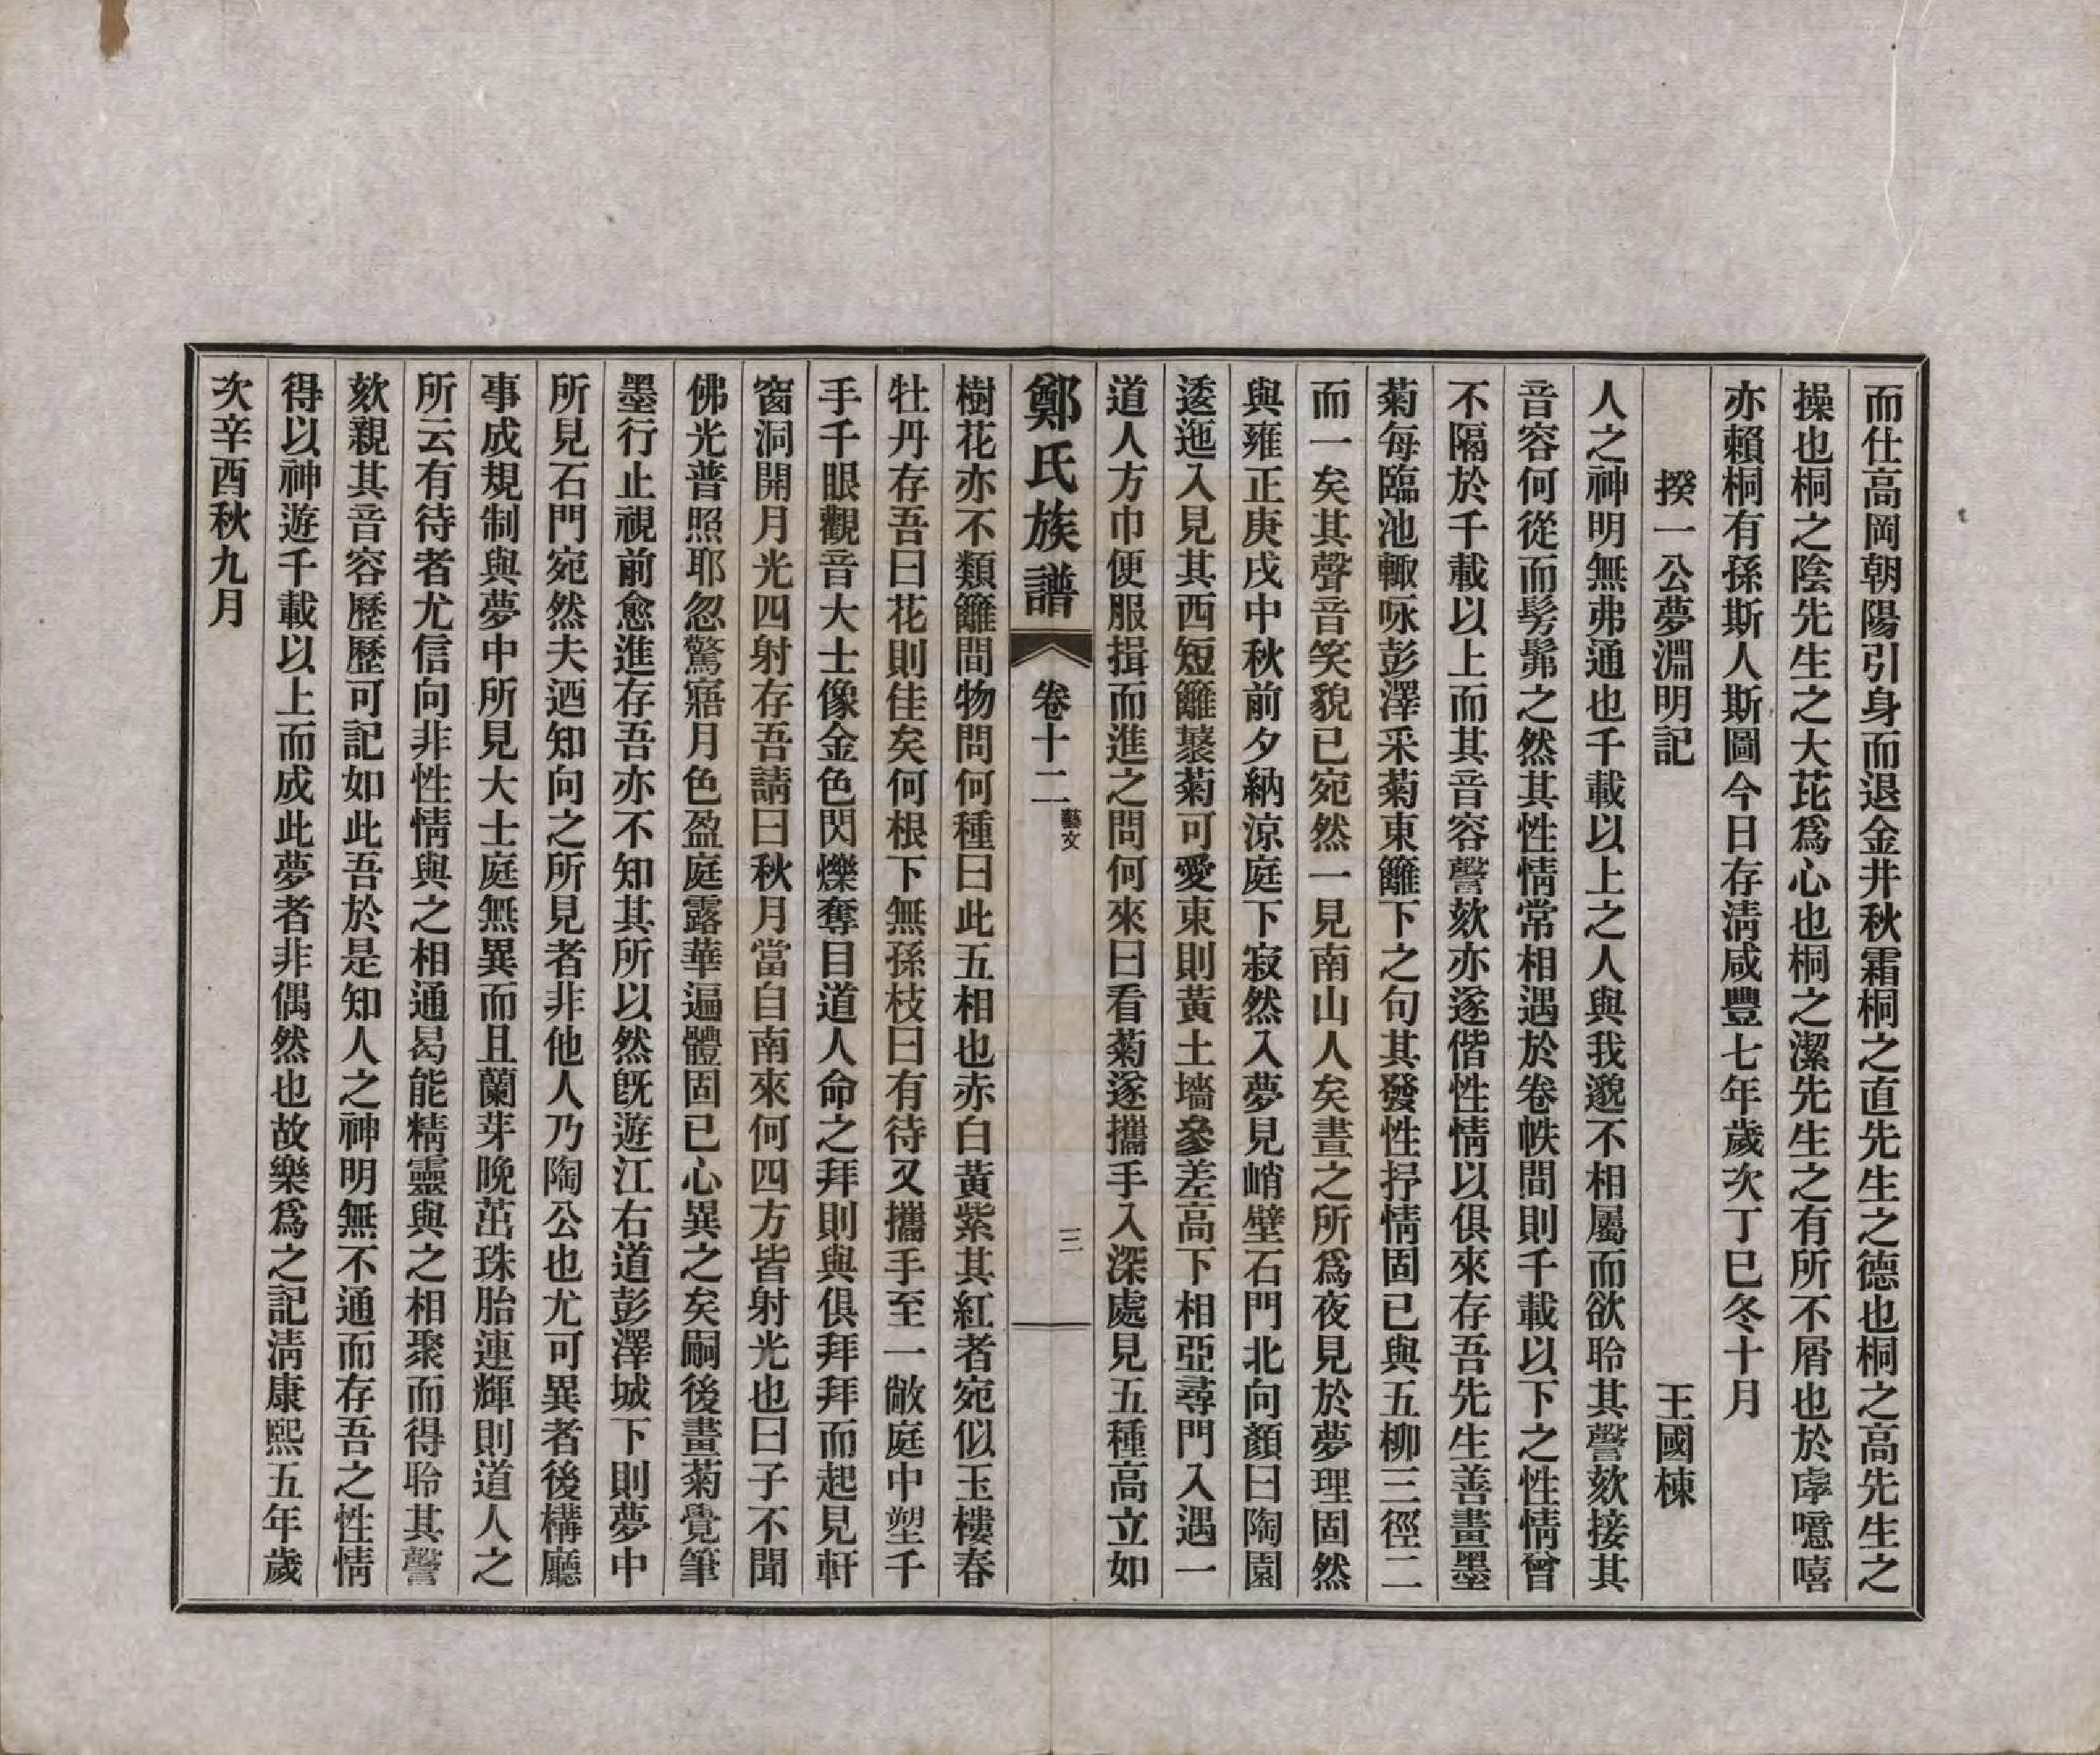 而仕高岡朝陽引身而退金井秋霜桐之直先生之德也桐之高先生之
操也桐之陰先生之大芘爲心也桐之潔先生之有所不屑也於虖噫嘻
亦賴桐有孫斯人斯圖今日存淸咸豐七年歲次丁巳冬十月
揆一公夢淵明記　王國棟
人之神明無弗通也千載以上之人與我邈不相屬而欲聆其謦欬接其
音容何從而髣髴之然其性情常相遇於卷帙間則千載以下之性情曾
不隔於千載以上而其音容謦欬亦遂偕性情以俱來存吾先生善畫墨
菊每臨池輙咏彭澤采菊東籬下之句其發性抒情固已與五柳三徑二
而一矣其聲音笑貌已宛然一見南山人矣晝之所爲夜見於夢理固然
與雍正庚戌中秋前夕納涼庭下寂然入夢見峭壁石門北向顏曰陶園
逶迤入見其西短籬蓑菊可愛東則黃土墻參差高下相亞尋門入遇一
道人方巾便服揖而進之問何來曰看菊遂攜手入深處見五種高立如
鄭氏族譜　卷十二　藝文　三
樹花亦不類籬間物問何種曰此五相也赤白黃紫其紅者宛似玉樓春
牡丹存吾曰花則佳矣何根下無孫枝曰有待又攜手至一敞庭中塑千
手千眼觀音大士像金色閃爍奪目道人命之拜則與俱拜拜而起見軒
窗洞開月光四射存吾請曰秋月當自南來何四方皆射光也曰子不聞
佛光普照耶忽驚寤月色盈庭露華遍體固已心異之矣嗣後畫菊覺筆
墨行止視前愈進存吾亦不知其所以然旣遊江右道彭澤城下則夢中
所見石門宛然夫迺知向之所見者非他人乃陶公也尤可異者後構廳
事成規制與夢中所見大士庭無異而且蘭芽晚茁珠胎連輝則道人之
所云有待者尤信向非性情與之相通曷能精靈與之相聚而得聆其謦
欬親其音容歷歷可記如此吾於是知人之神明無不通而存吾之性情
得以神遊千載以上而成此夢者非偶然也故樂爲之記淸康熙五年歲
次辛酉秋九月